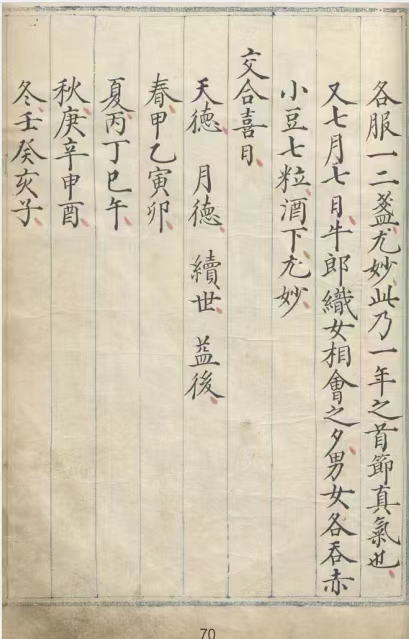 各服一二盞尤妙此乃一年之首節真氣也
又七月七日牛郎織女相會之夕男女各吞赤
小豆七粒酒下尤妙
交合喜日
天德　月德　續世　益後
春甲乙寅卯
夏丙丁巳午
秋庚辛申酉
冬壬癸亥子
70